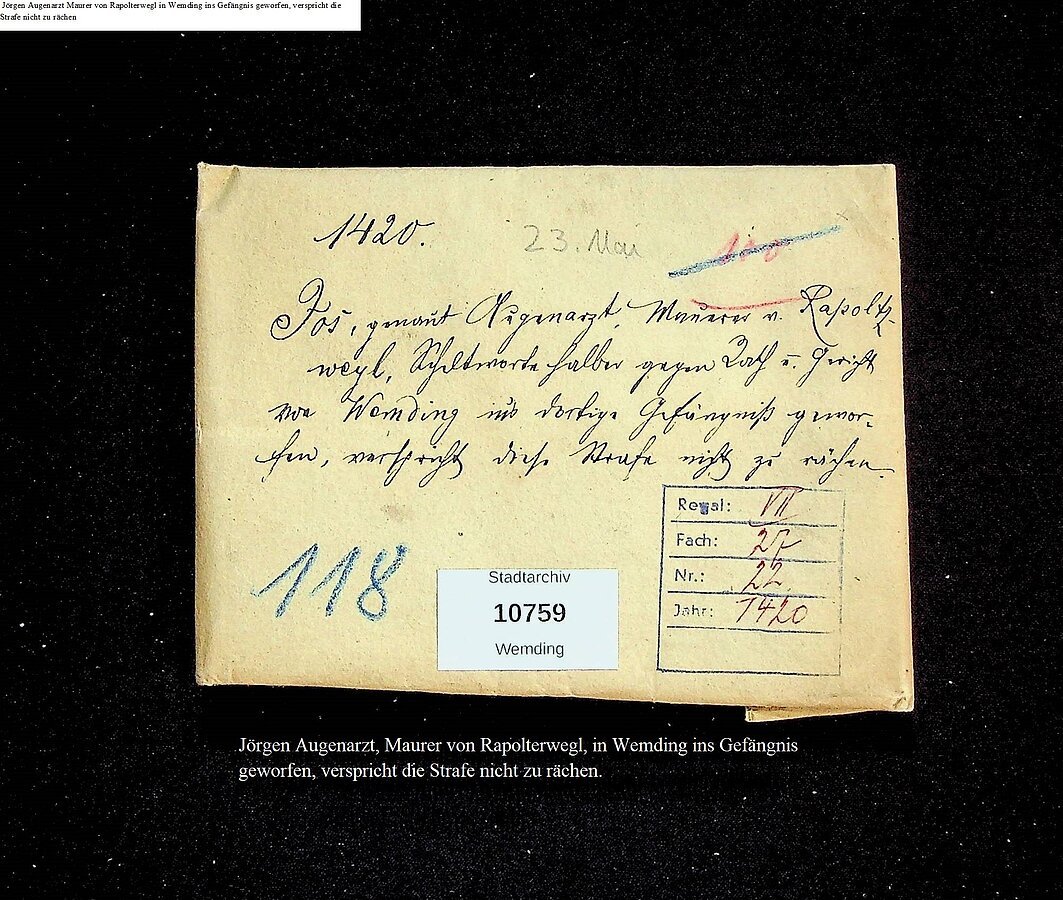 Jörgen Augenarzt Maurer von Rapolterwegl in Wemding ins Gefängnis geworfen, verspricht die
Strafe nicht zu rächen
1420.
23. Mai
Jos, genant Augenarzt, Mauerer v. Rapoltz-
weyl, Scheltworte halber gegen Rath u. Gericht
von Wemding ins dortige Gefängniß gewor-
fen, verspricht diese Strafe nicht zu rächen.
Regal: VII
Fach: 27
Nr.: 22
Jahr: 1420
118
Stadtarchiv
10759
Wemding
Jörgen Augenarzt, Maurer von Rapolterwegl, in Wemding ins Gefängnis
geworfen, verspricht die Strafe nicht zu rächen.